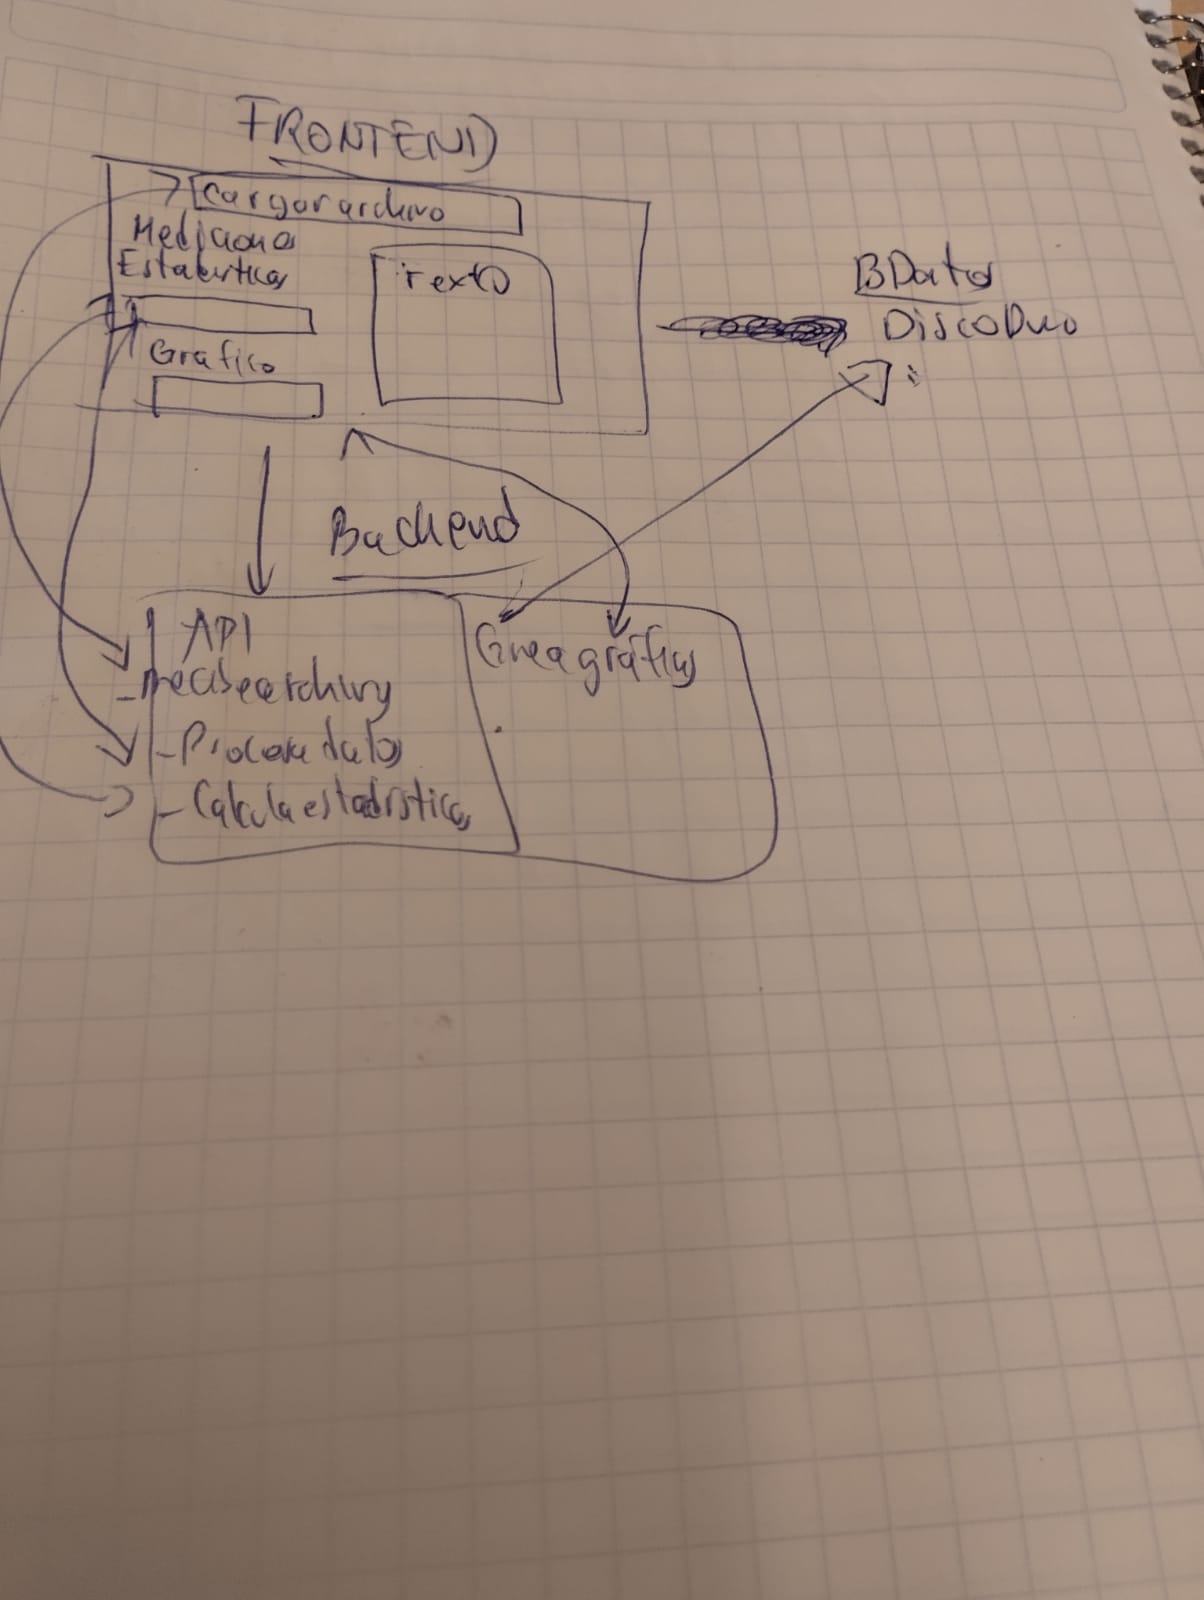 FRONTEND
Cargar archivo
Mediciones
Estadisticas
Texto
Grafico
BDatos
Disco Duro
Backend
API
- recibe archivos
- Procesa datos
- Calcula estadisticas
Crea graficos